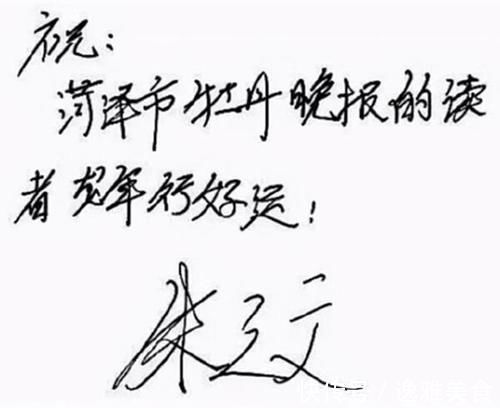 祝:
菏泽市牡丹晚报的读
者龙年行好运!
朱之文
快传号 / 逸雅美食